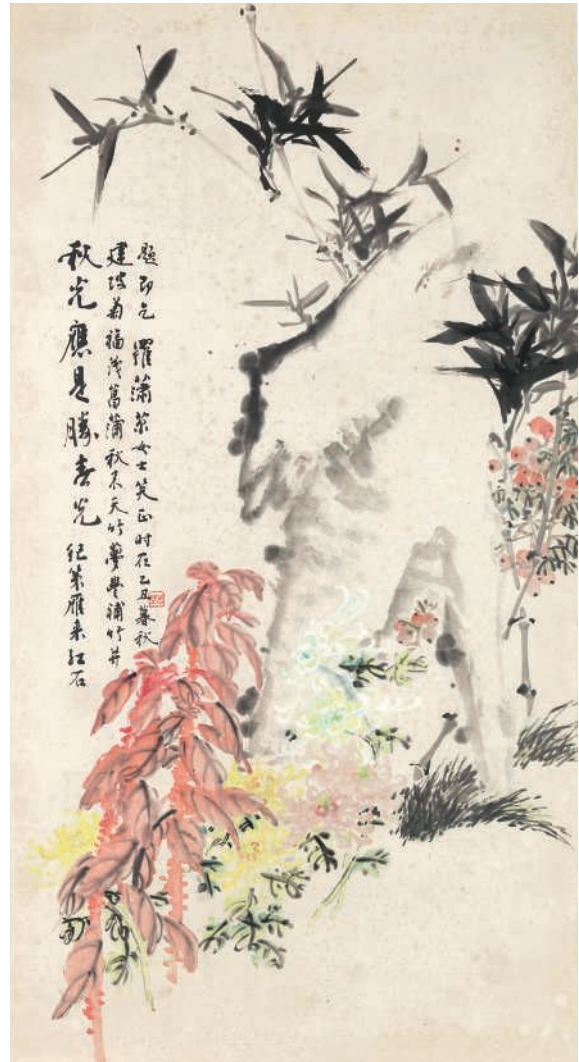 秋光應是勝春光 纪策雁来红石
建 菊福茂菖蒲秋 天竹夢 補竹并
題即乞 羅蕭 女士笑正时在乙丑暮秋